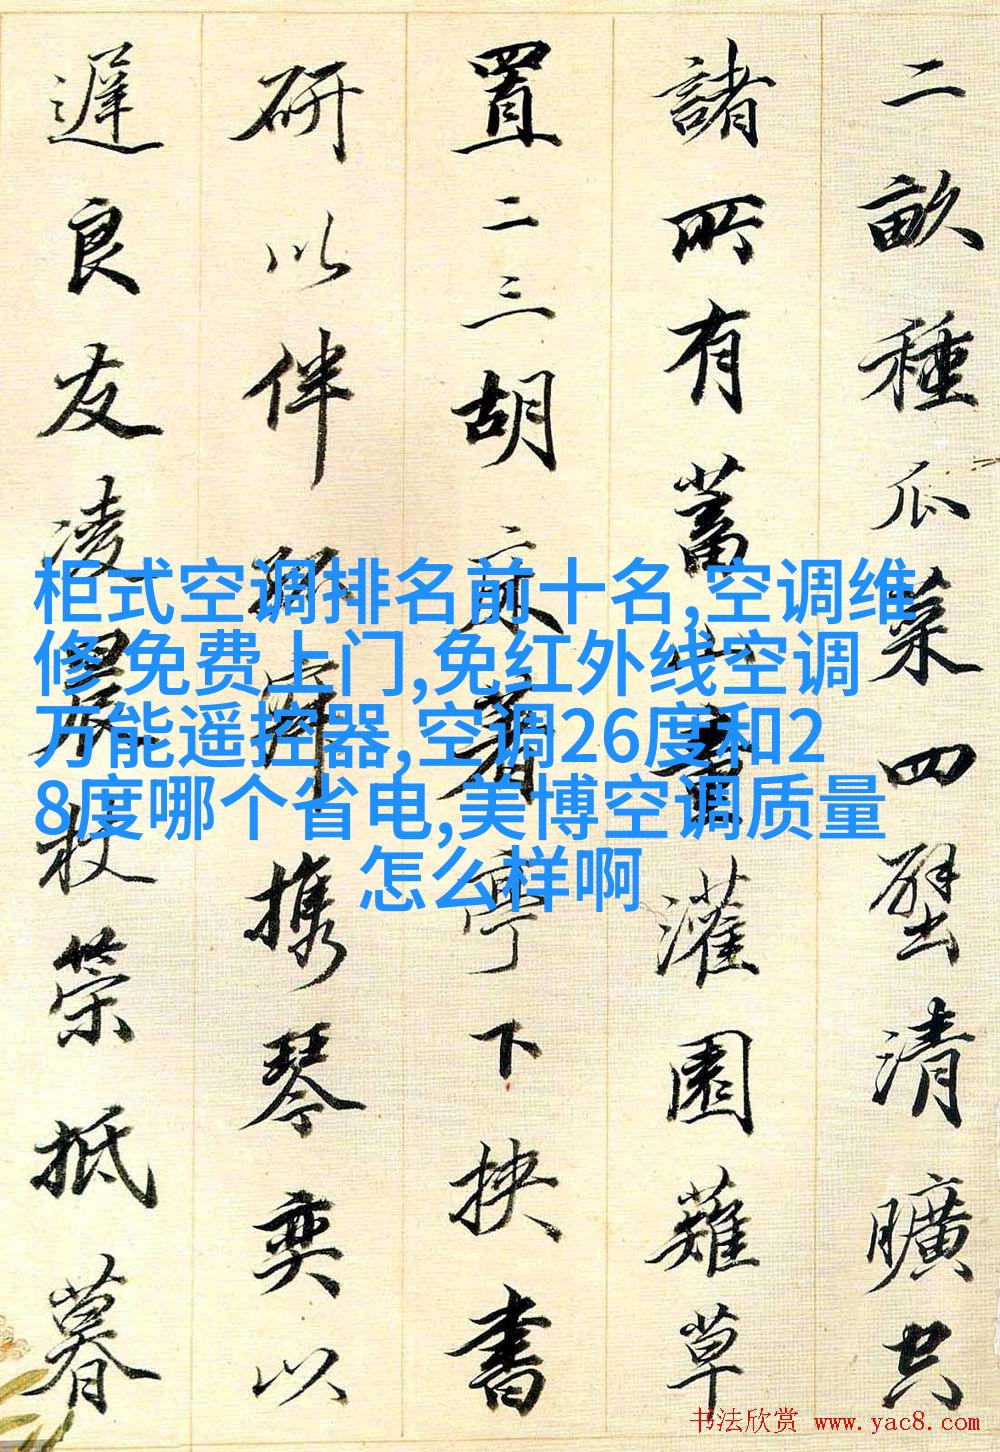 二畝種瓜菜四壁清曠空
諸所有蓄山童灌園薙草
置二三胡床著亭下挾書
研以伴孤寂攜琴奕以
遲良友凌晨杖策抵暮
柜式空调排名前十名,空调维
修 免费上门,免红外线空调
万能遥控器,空调26度和2
8度哪个省电,美博空调质量
怎么样啊
书法欣赏 www.yac8.com